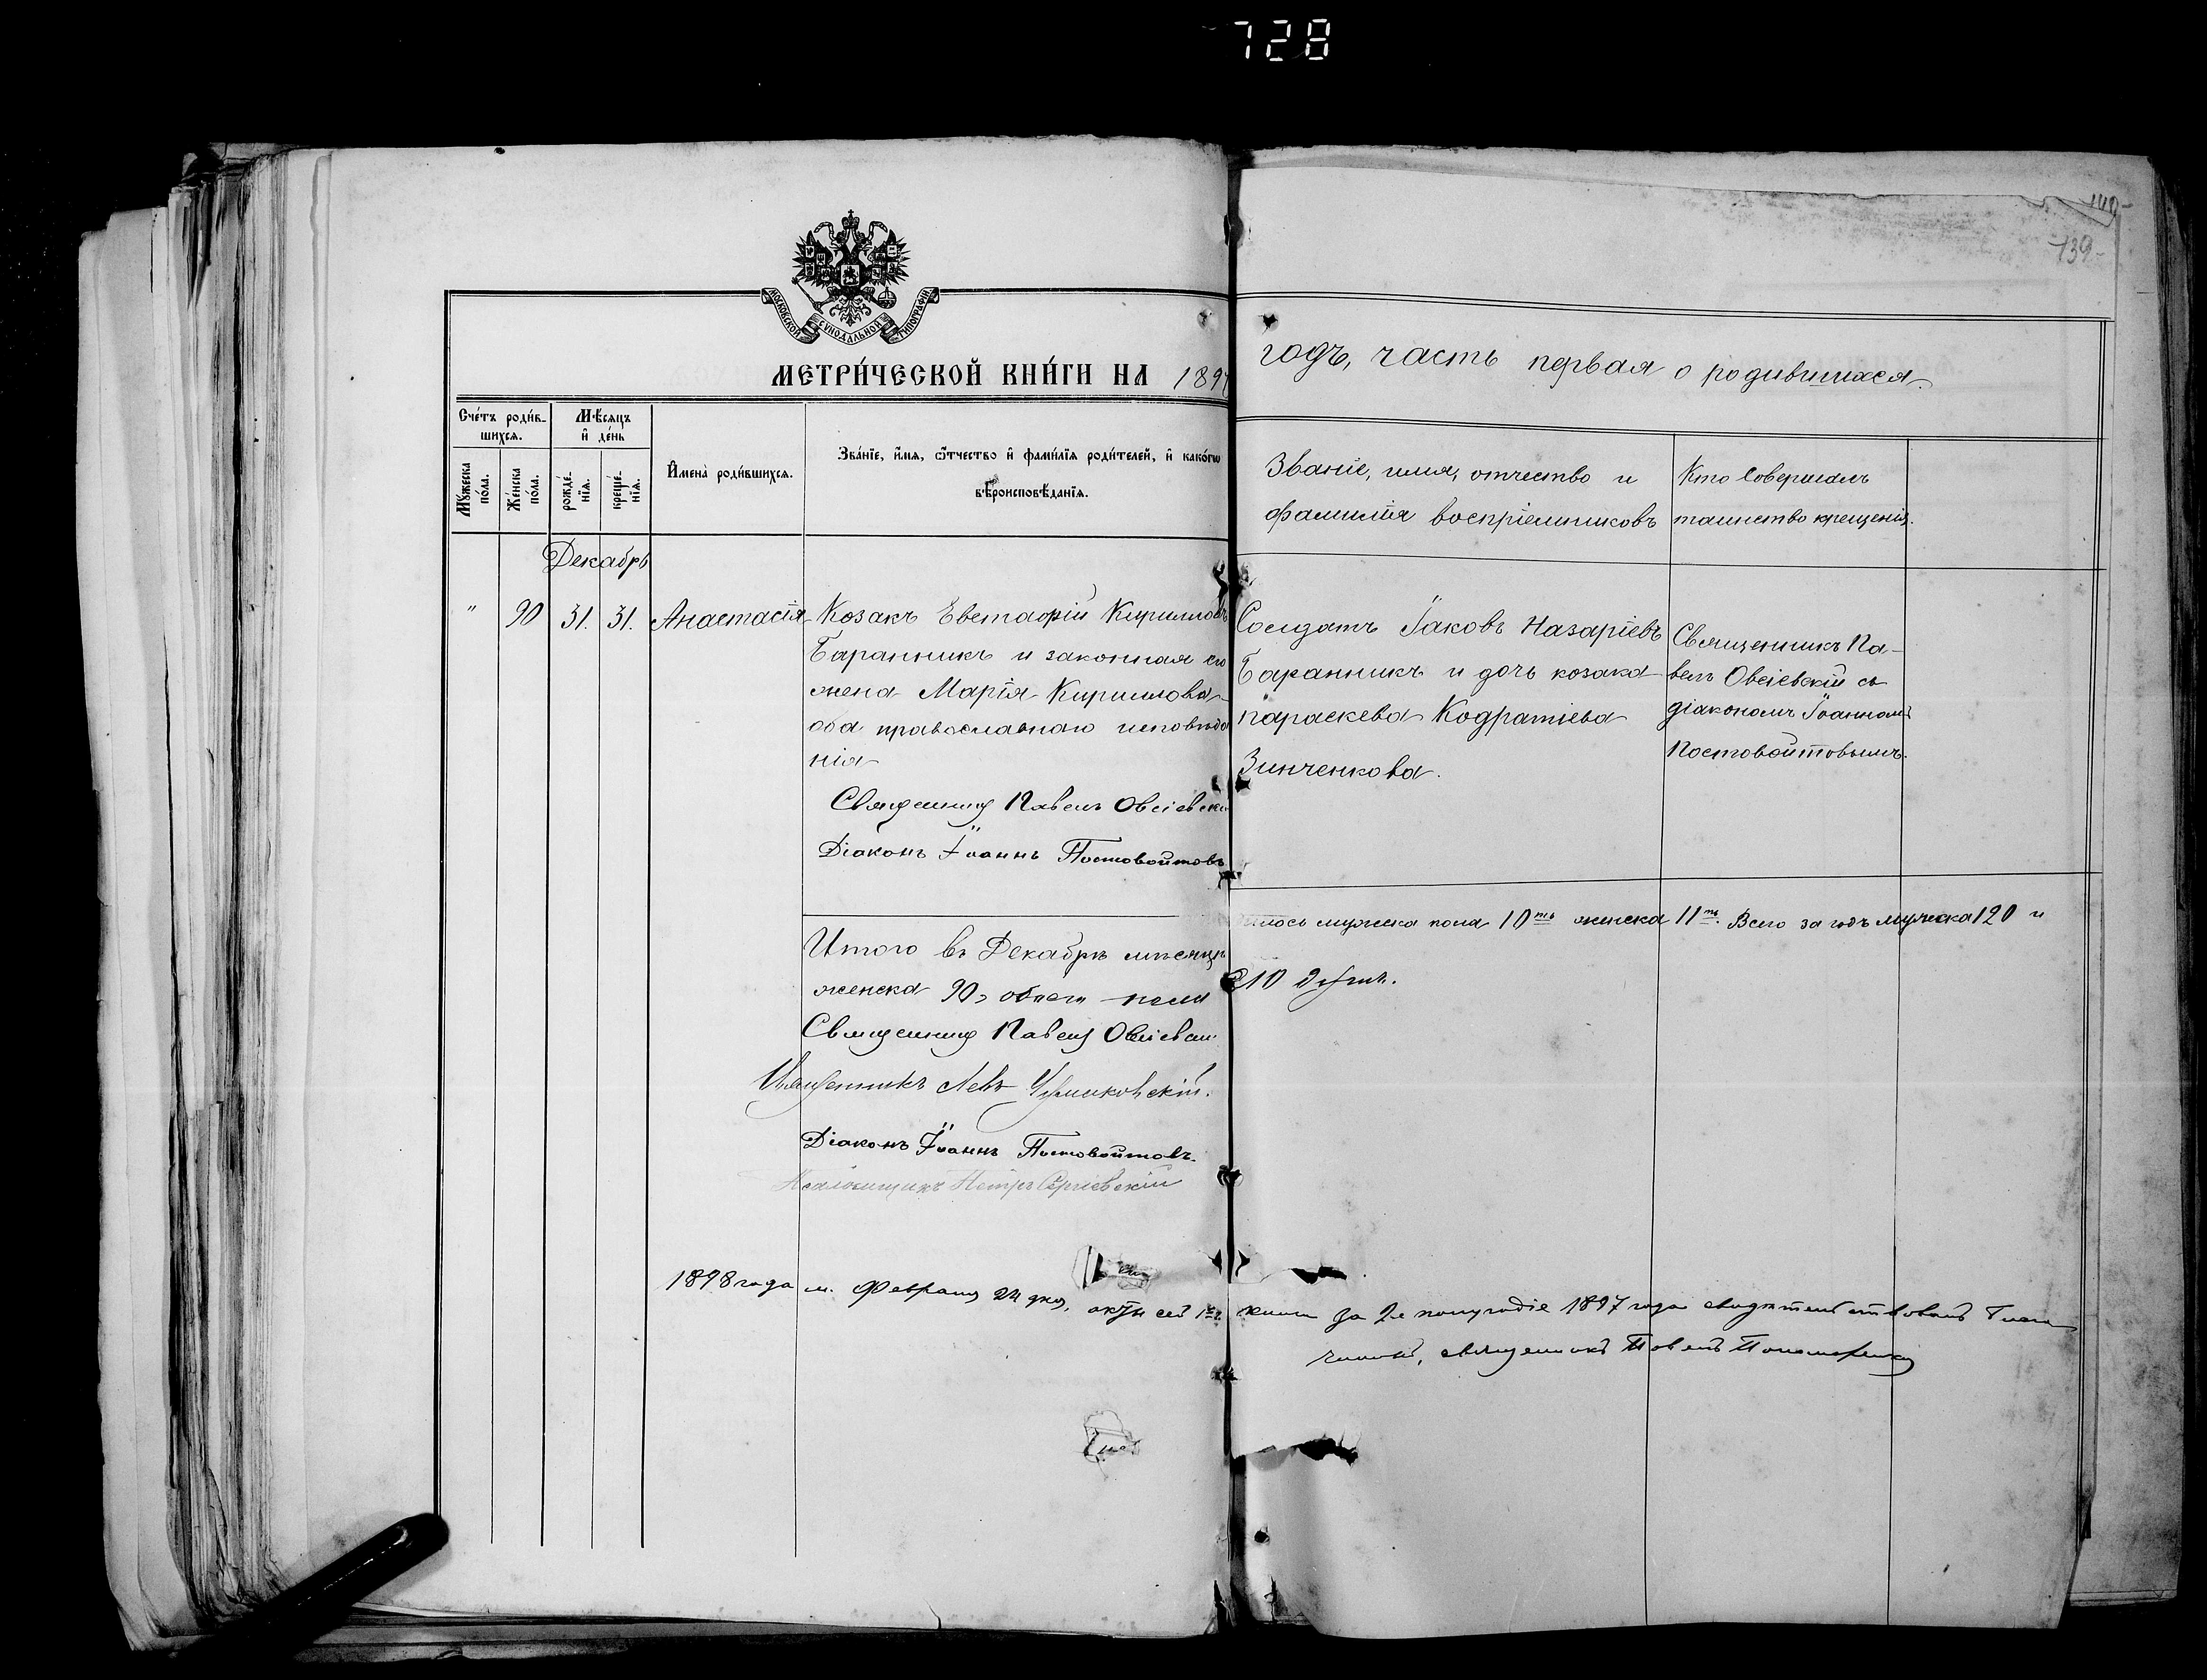 728
140
139
МОСКОВСКОЙ СУНОДАЛЬНОЙ ТИПОГРАФІИ
МЕТРИ́ЧЕСКОЙ КНИ́ГИ НА 1897
годъ, часть первая о родившихся.
Сче́тъ роди́в-
шихся.
Мѣ́сяцъ
и҆ де́нь
Му́жеска
по́ла.
Же́нска
по́ла.
рожде́-
нїѧ.
креще́-
нїѧ.
И҆мена̀ роди́вшихся.
Зва́нїе, и҆́мѧ, ѻ҆́тчество и҆ фами́лїѧ роди́телей, и҆ како́гѡ
вѣроисповѣ́данїѧ.
Званіе, имя, отчество и
фамилія воспріемниковъ
Кто совершалъ
таинство крещенія.
Декабрь
" 90 31. 31. Анастасія
Козакъ Евстафій Кирилловъ
Баранникъ и законная его
жена Марія Кириллова
оба православнаго исповѣда
нія
Священникъ Павелъ Овсіевскі
Діаконъ Іоаннъ Постовойтовъ
Солдатъ Іаковъ Назаріевъ
Баранникъ и дочь козака
Параскева Кодратіева
Зинченкова.
Священникъ Па-
велъ Овсіевскій съ
діакономъ Іоанномъ
Постовойтовымъ.
Итого въ Декабрѣ мѣсяцѣ
илось мужеска пола 10ть женска 11ть. Всего за годъ мужеска 120 и
женска 90, обоего пола
210 душъ.
Священникъ Павелъ Овсіевскі
Священникъ Левъ
Діаконъ Іоаннъ Постовойтовъ.
Псаломщикъ Петръ Сергіевскій
1898 года м. Февраля 24 дня, сей 1й книги за 2е полугодіе 1897 года свидѣтельствовалъ Благо
чинный, священникъ Павелъ Пономаренко